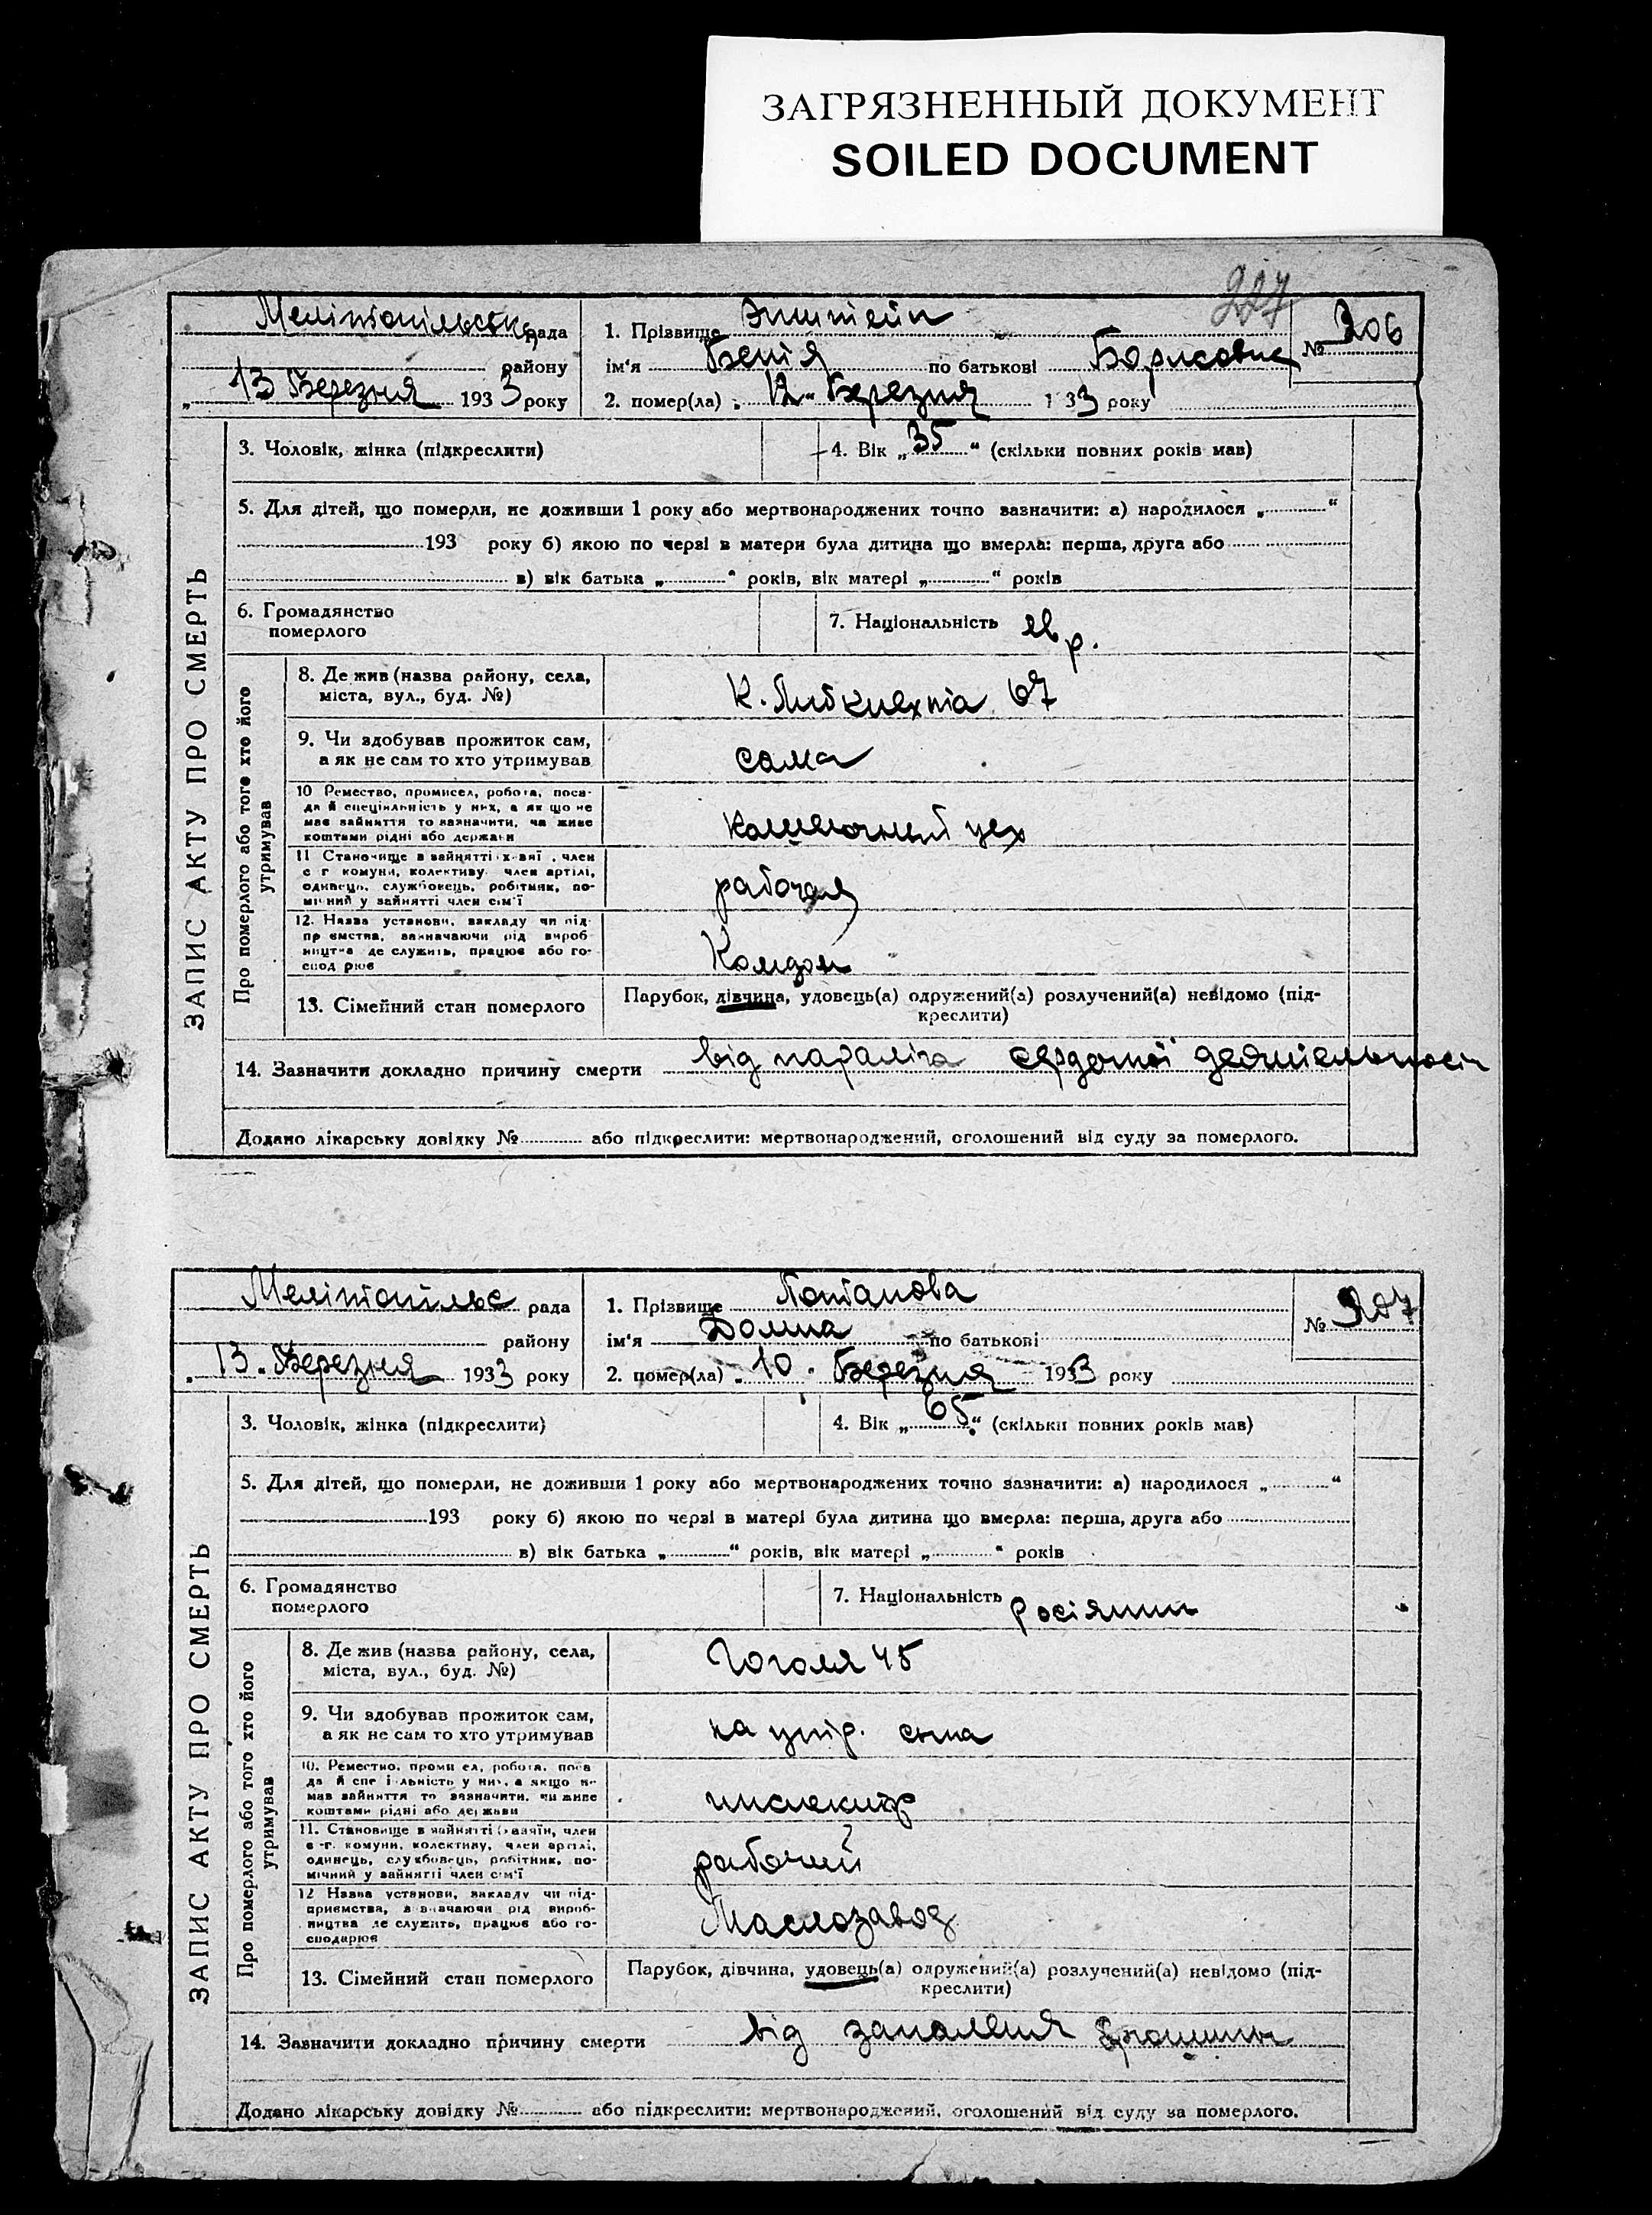 ЗАГРЯЗНЕННЫЙ ДОКУМЕНТ
SOILED DOCUMENT
227
Мелітопільськ рада
району
„ 13 Березня 1933 року
1. Прізвище Эпштейн
ім'я Бенія по батькові Борисовна
2. помер(ла) „ 12 " Березня 1 33 року
№ 206
ЗАПИС АКТУ ПРО СМЕРТЬ
3. Чоловік, жінка (підкреслити)
4. Вік „ 35 “ (скільки повних років мав)
5. Для дітей, що померли, не доживши 1 року або мертвонароджених точно зазначити: а) народилося „ “
193 року б) якою по черзі в матери була дитина що вмерла: перша, друга або
в) вік батька „ “ років, вік матері „ “ років
6. Громадянство
померлого
7. Національність евр.
Про померлого або того хто його
утримував
8. Де жив (назва району, села,
міста, вул., буд. №)
К. Либкнехта 67
9. Чи здобував прожиток сам,
а як не сам то хто утримував
сама
10 Ремество, промисел, робота, поса-
да й спеціяльність у них, а як що не
має зайняття то зазначити, чи живе
коштами рідні або держави
цех
11 Становище в зайнятті хазяї , член
с г комуни, колективу член артілі,
одинець, службовець, робітник, по-
мічний у зайнятті член сім'ї
рабочая
12. Назва установи, закладу чи під-
приємства, зазначаючи рід вироб-
ництва де служить, працює або го-
сподарює
13. Сімейний стан померлого
Парубок, дівчина, удовець(а) одружений(а) розлучений(а) невідомо (під-
креслити)
14. Зазначити докладно причину смерти від параліча сердочної деятельности
Додано лікарську довідку № або підкреслити: мертвонароджений, оголошений від суду за померлого.
Мелітопільс рада
району
„ 13. Березня 1933 року
1. Прізвище Потапова
ім'я Домна по батькові
2. помер(ла) „ 10 . Березня 1933 року
№ 207
ЗАПИС АКТУ ПРО СМЕРТЬ
3. Чоловік, жінка (підкреслити)
4. Вік „ 65 “ (скільки повних років мав)
5. Для дітей, що померли, не доживши 1 року або мертвонароджених точно зазначити: а) народилося „ “
193 року б) якою по черзі в матері була дитина що вмерла: перша, друга або
в) вік батька „ “ років, вік матері „ “ років
6. Громадянство
померлого
7. Національність росіянин
Про померлого або того хто його
утримував
8. Де жив (назва району, села,
міста, вул., буд. №)
Гоголя 45
9. Чи здобував прожиток сам,
а як не сам то хто утримував
на утр. сына
10. Ремество, промисел, робота, поса
да й спеціяльність у них, а якщо не
мав зайняття то зазначити, чи живе
коштами рідні або держави
11. Становище в зайнятті (хазяїн, член
с-г. комуни, колективу, член артілі,
одинець, службовець, робітник, по-
мічний у зайнятті член сім'ї
рабочий
12 Назва установи, закладу чи під-
приємства, зазначаючи рід вироб-
ництва де служить, працює або го-
сподарює
Маслозавод
13. Сімейний стан померлого
Парубок, дівчина, удовець(а) одружений(а) розлучений(а) невідомо (під-
креслити)
14. Зазначити докладно причину смерти від запалення
Додано лікарську довідку № або підкреслити: мертвонароджений, оголошений від суду за померлого.